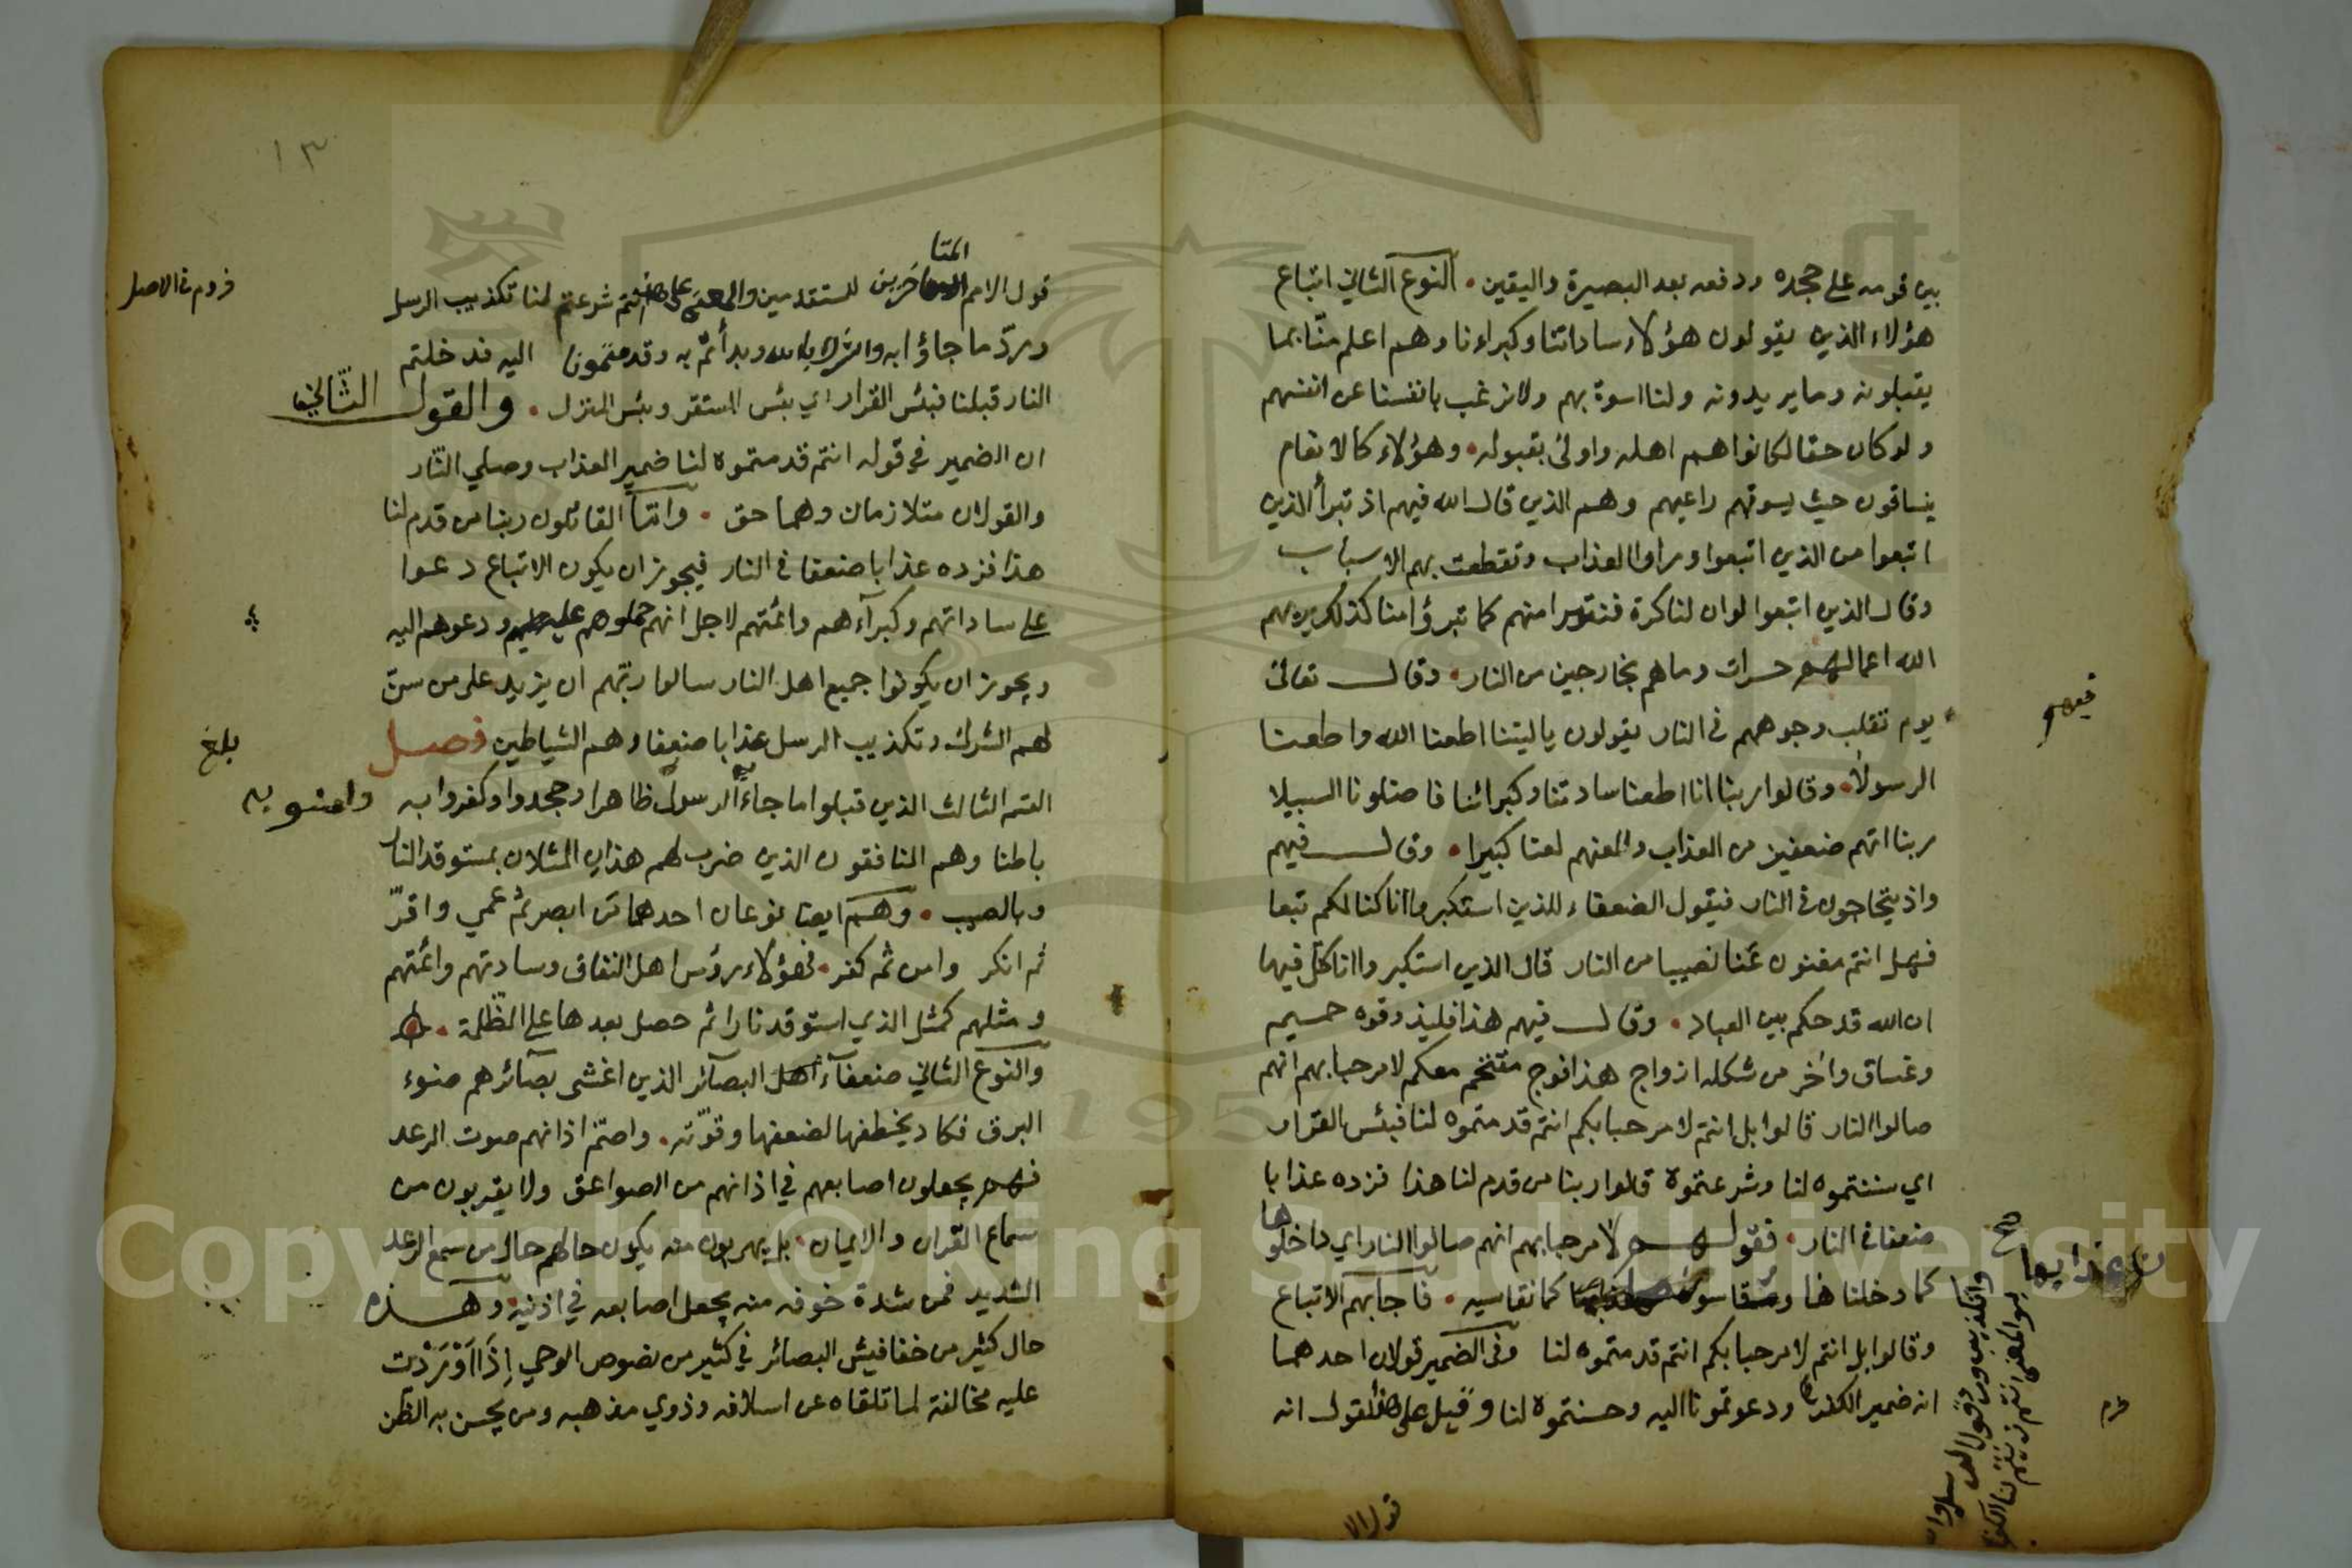 بين قومه على جحده ودفعه بعد البصيرة واليقين . النوع الثاني اتباع
هؤلاء الذين يقولون هؤلاء ساداتنا وكبراؤنا وهم اعلم منّا بما
يقبلونه وما يريدونه ولنا اسوة بهم ولا نرغب بانفسنا عن انفسهم
ولو كان حقا لكانوا هم اهله واولى بقبوله . وهؤلاء كالانعام
ينساقون حيث يسوقهم راعيهم وهم الذين قال الله فيهم اذ تبرأ الذين
اتبعوا من الذين اتبعوا وراوا العذاب وتقطعت بهم الاسباب
وقال الذين اتبعوا لو ان لنا كرة فنتبرا منهم كما تبرؤا منا كذلك يريهم
الله اعمالهم حسرات وما هم بخارجين من النار . وقال تعالى
يوم تقلب وجوههم في النار يقولون ياليتنا اطعنا الله واطعنا
الرسولا . وقالوا ربنا انا اطعنا سادتنا وكبرائنا فاضلونا السبيلا
ربنا اتهم ضعفين من العذاب والعنهم لعنا كبيرا . وقال فيهم
واذ يتحاجون في النار فيقول الضعفاء للذين استكبروا انا كنا لكم تبعا
فهل انتم مغنون عنا نصيبا من النار قال الذين استكبروا انا كل فيها
ان الله قد حكم بين العباد . وقال فيهم هذا فليذوقوه حميم
وغساق واخر من شكله ازواج هذا فوج مقتحم معكم لا مرحبا بهم انهم
صالوا النار قالوا بل انتم لا مرحبا بكم انتم قدمتموه لنا فبئس القرار
اي سننتموه لنا وشرعتموه قالوا ربنا من قدم لنا هذا فزده عذابا
ضعفا في النار . فقولهم لا مرحبا بهم انهم صالوا النار اي داخلوها
كما دخلناها ومقاسون كما نقاسيه . فاجابهم الاتباع
وقالوا بل انتم لا مرحبا بكم انتم قدمتموه لنا وفي الضمير قولان احدهما
انه ضمير الكفر ودعوتمونا اليه وحسنتموه لنا وقيل على هذا القول انه
عذابها
قول الا
١٣
المتا
قول الامم المتاخرين للمتقدمين والمعنى على هذا انتم شرعتم لنا تكذيب الرسل
وردّ ما جاؤا به والشرك بالله وبدأتم به وقدمتمونا اليه فدخلتم
النار قبلنا فبئس القرار اي بئس المستقر وبئس المنزل . والقول الثّاني
ان الضمير في قوله انتم قدمتموه لنا ضمير العذاب وصلي النّار
والقولان متلازمان وهما حق . وامّا القائلون ربنا من قدم لنا
هذا فزده عذابا ضعفا في النار فيجوز ان يكون الاتباع دعوا
على ساداتهم وكبرآءهم وائمتهم لاجل انهم حملوهم عليه ودعوهم اليه
ويجوز ان يكونوا جميع اهل النار سالوا ربّهم ان يزيد على من سنّ
لهم الشرك وتكذيب الرسل عذابا ضعفا وهم الشياطين فصل
القسم الثالث الذين قبلوا ما جاء به الرسول ظاهرا وجحدوا وكفروا به
باطنا وهم المنافقون الذين ضرب لهم هذان المثلان بمستوقد النار
وبالصيب . وهم ايضا نوعان احدهما من ابصر ثم عمي واقرّ
ثم انكر وامن ثم كفر . فهؤلاء رؤس اهل النفاق وسادتهم وائمتهم
ومثلهم كمثل الذي استوقد نارا ثم حصل بعدها على الظّلمة .
والنوع الثاني ضعفآء اهل البصآئر الذين اغشى بصآئرهم ضوء
البرق فكاد يخطفها لضعفها وقوّته . واصمّ اذانهم صوت الرعد
فهم يجعلون اصابعهم في اذانهم من الصواعق ولا يقربون من
سماع القران والايمان . بل يهربون منه يكون حالهم حال من سمع الرعد
الشديد فمن شدة خوفه منه يجعل اصابعه في اذنيه . وهذه
حال كثير من خفافيش البصائر في كثير من نصوص الوحي إِذَا وَرَدْت
عليه مخالفة لما تلقاه عن اسلافه وذوي مذهبه ومن يحسن به الظن
بلغ
Copyright © King Saud University
1957